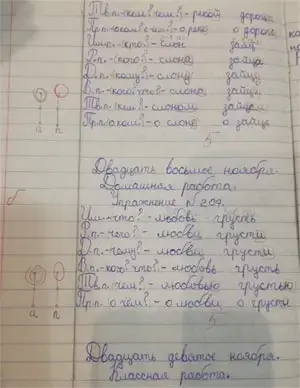 Тв.п.-(кем? чем?)-рекой дорогой
Пр.п.-(о ком? о чём?)-о реке о дороге
Им.п.-(кто?)-слон заяц
Р.п.-(кого?)-слона зайца
Д.п.-(кому?)-слону зайцу
В.п.-(кого? что?)-слона зайца
Тв.п.(кем?)-слоном зайцем
Пр.п.(о ком?)-о слоне о зайце
5
Двадцать восьмое ноября.
Домашняя работа.
Упражнение № 209.
Им.-что?-любовь грусть
Р.п.-чего?-любви грусти
Д.п.-чему?-любви грусти
В.п.-кого? что?-любовь грусть
Тв.п. чем?-любовью грустью
Пр.п. о чём?-о любви о грусти
5
Двадцать девятое ноября.
Классная работа.